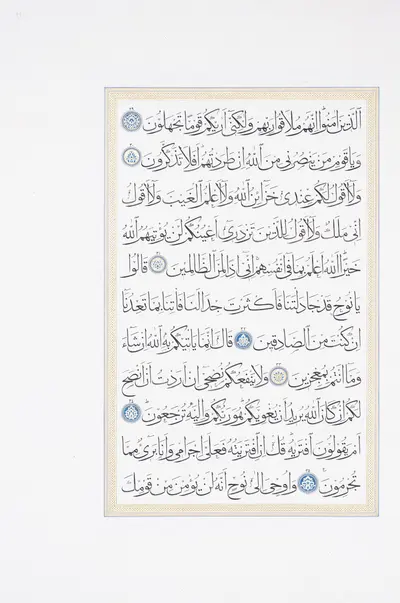 الذين امنوا انهم ملاقوا ربهم ولكنى اريكم قوما تجهلون ٢٩
ويا قوم من ينصرنى من الله ان طردتهم افلا تذكرون ٣٠
ولا اقول لكم عندى خزاين الله ولا اعلم الغيب ولا اقول
انى ملك ولا اقول للذين تزدرى اعينكم لن يوتيهم الله
خيرا الله اعلم بما فى انفسهم انى اذا لمن الظالمين ٣١ قالوا
يا نوح قد جادلتنا فاكثرت جدالنا فاتنا بما تعدنا
ان كنت من الصادقين ٣٢ قال انما ياتيكم به الله ان شاء
وما انتم بمعجزين ٣٣ ولا ينفعكم نصحى ان اردت ان انصح
لكم ان كان الله يريد ان يغويكم هو ربكم واليه ترجعون ٣٤
ام يقولون افتريه قل ان افتريته فعلى اجرامى وانا برى مما
تجرمون ٣٥ واوحى الى نوح انه لن يومن من قومك